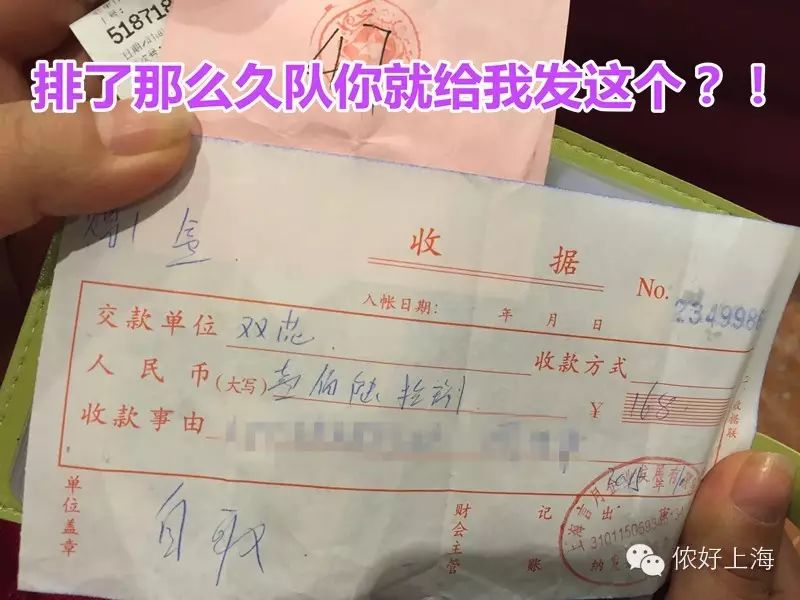 518718
47
排了那么久队你就给我发这个？！
1盒
收 据
No. 2349986
入帐日期： 年 月 日
交款单位 双莲 收款方式
人民币(大写) 壹佰陆拾捌 ¥ 168
收款事由
收据联
单位盖章
自取
财会主管
记账
出纳
侬好上海